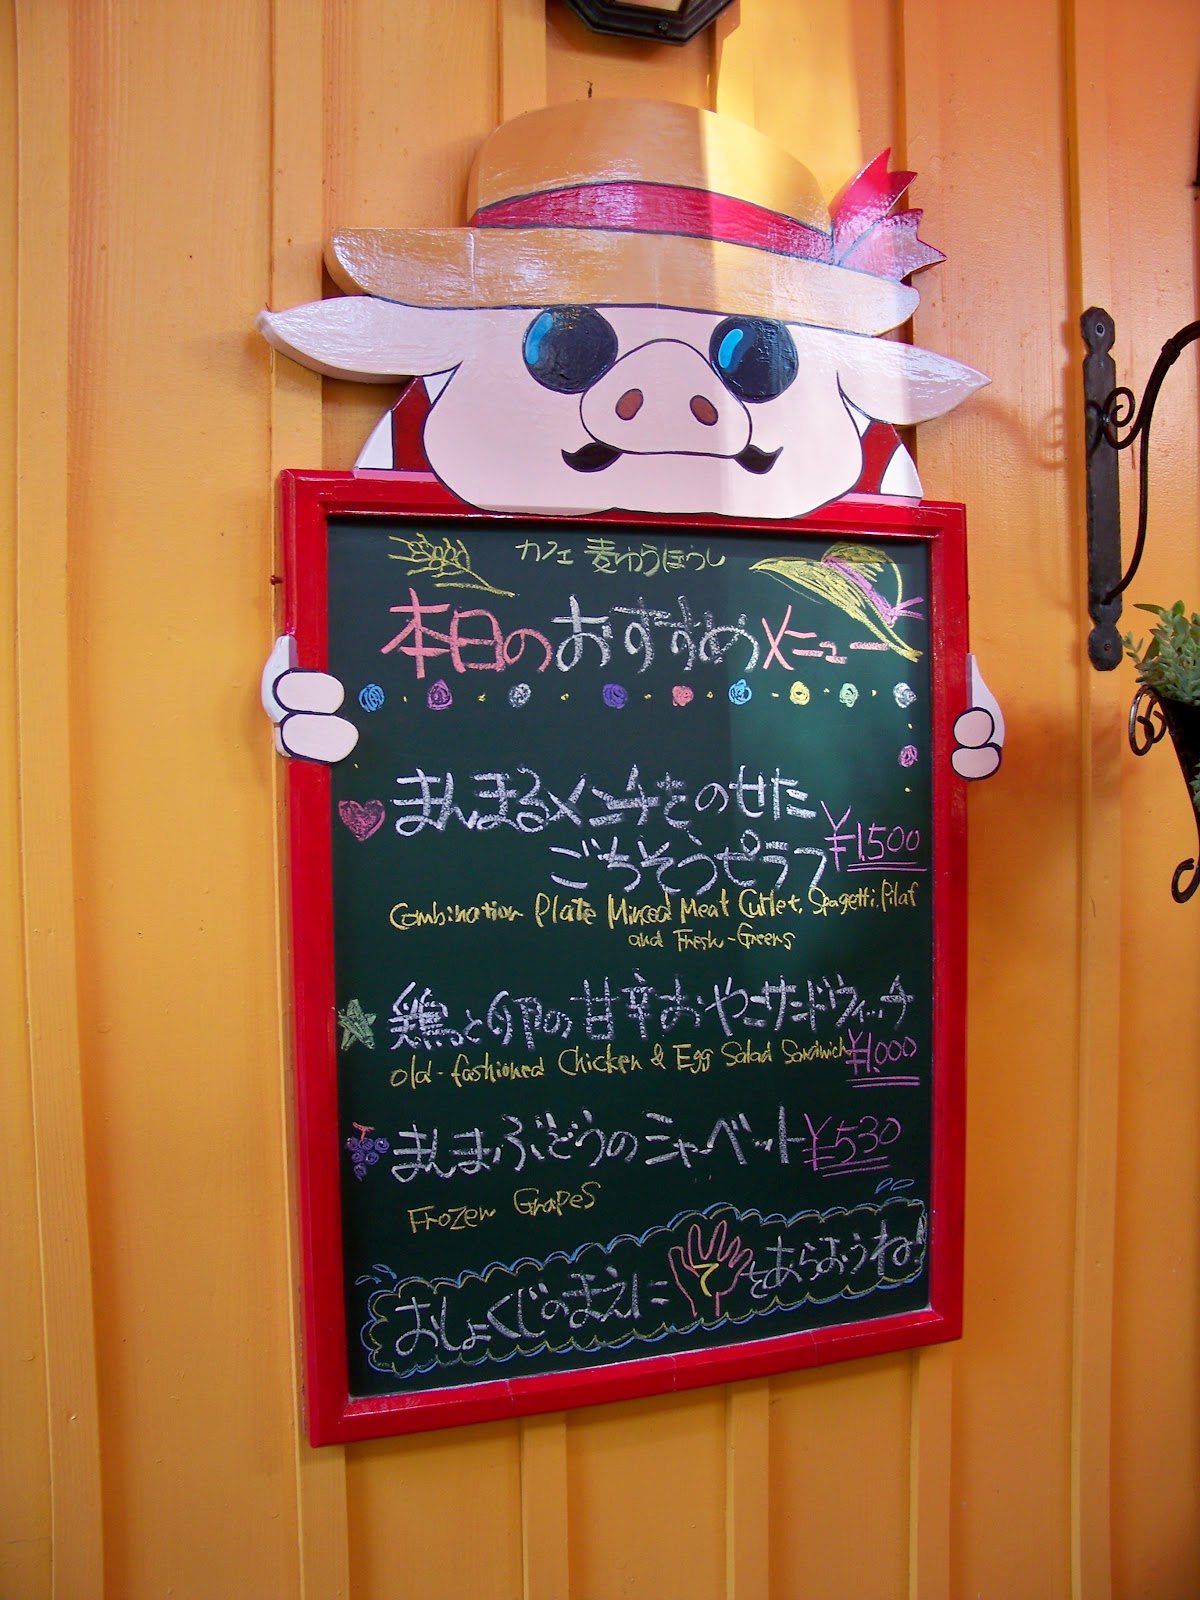 カフェ 麦わらぼうし
本日のおすすめメニュー
まんまるメンチをのせた
ごちそうピラフ ¥1,500
Combination Plate Minced Meat Cutlet, Spagetti, Pilaf
and Fresh-Greens
鶏っと卵の甘辛おやこサンドウィッチ
Old-fashioned Chicken & Egg Salad Sandwich ¥1,000
まんまぶどうのシャーベット ¥530
Frozen Grapes
おしょくじのまえに てをあらおうね!